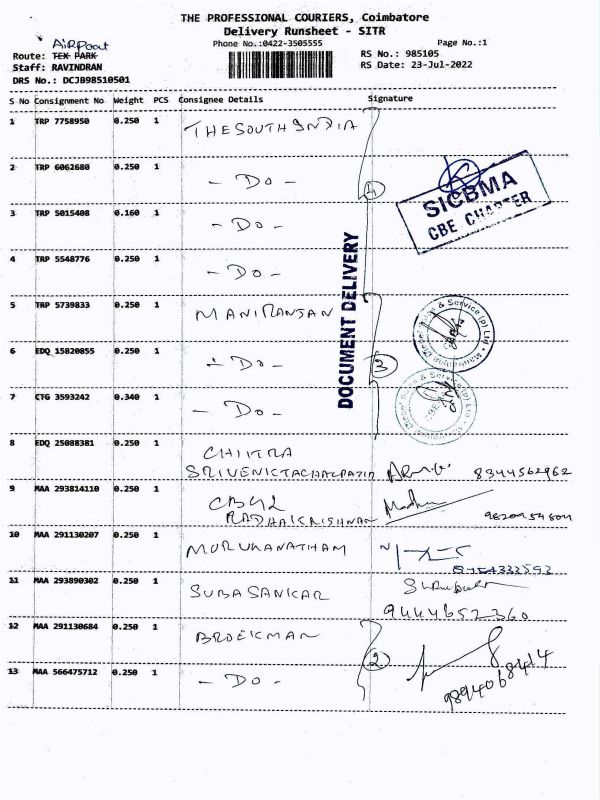 THE PROFESSIONAL COURIERS, Coimbatore
Delivery Runsheet - SITR
Phone No.:0422-3505555
Page No.:1
AIRPORT
Route: TEX PARK
Staff: RAVINDRAN
DRS No.: DCJB98510501
RS No.: 985105
RS Date: 23-Jul-2022
S No Consignment No Weight PCS Consignee Details Signature
1 TRP 7758950 0.250 1 THE SOUTH INDIA
2 TRP 6062680 0.250 1 - DO -
4
SICBMA
CBE CHAPTER
3 TRP 5015408 0.160 1 - DO -
4 TRP 5548776 0.250 1 - DO -
DOCUMENT DELIVERY
5 TRP 5739833 0.250 1 MANIRANJAN
6 EDQ 15820855 0.250 1 - DO -
3
7 CTG 3593242 0.340 1 - DO -
8 EDQ 25088381 0.250 1 CHITRA
8344562962
9 MAA 293814110 0.250 1
RADHAKRISHNAN
10 MAA 291130207 0.250 1 MURUKANATHAM
11 MAA 293890302 0.250 1 SUBASANKAR
9444652360
12 MAA 291130684 0.250 1 BROEKMAN
2
13 MAA 566475712 0.250 1 - DO -
9894068414